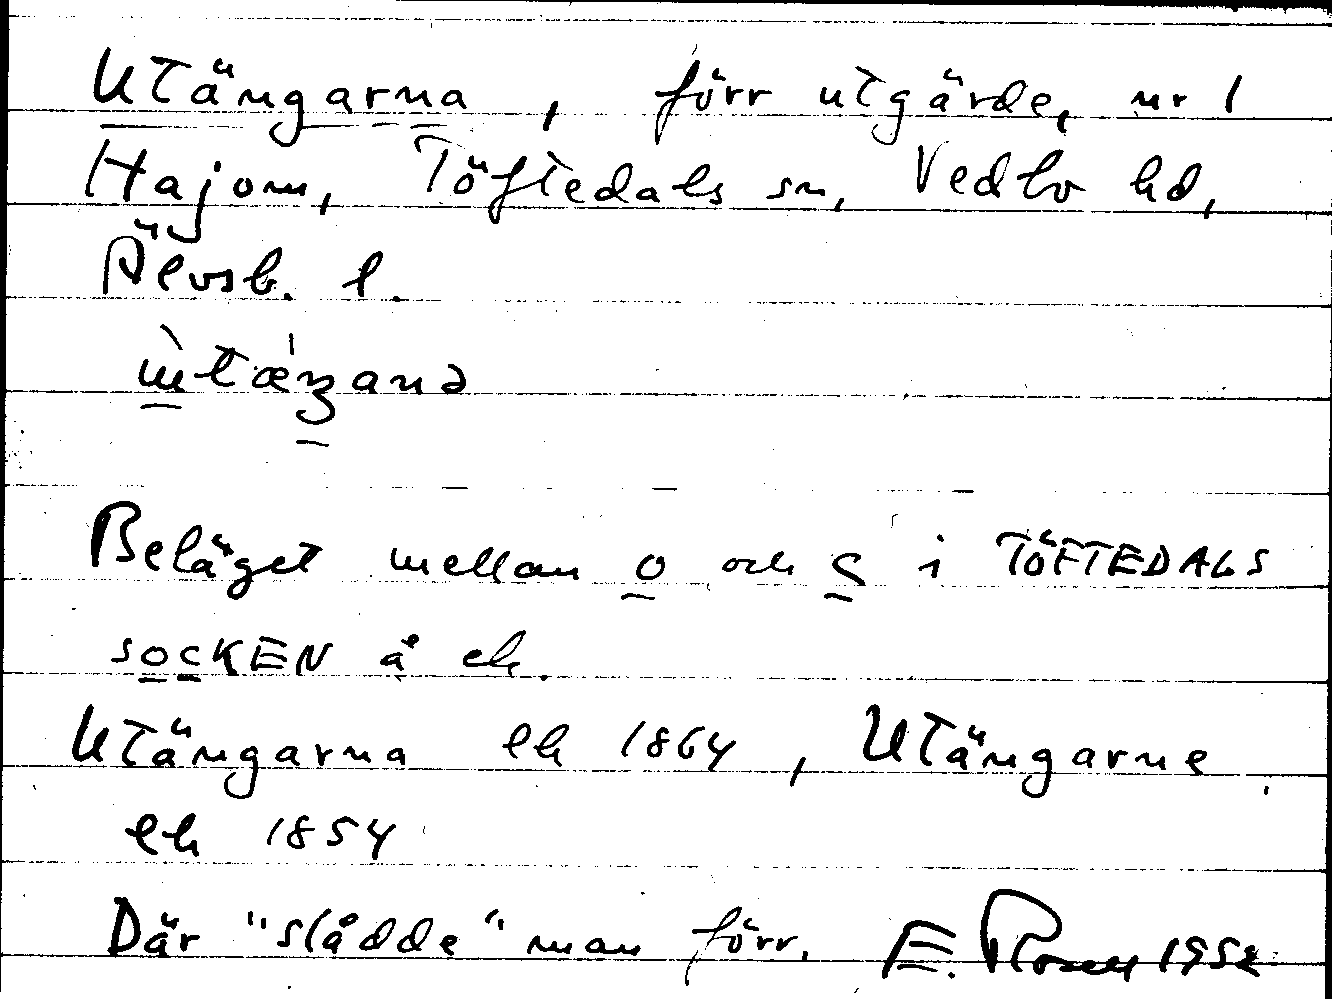 Utängarna, förr utgärde, nr 1
Hajom, Töftedals sn, Vedbo hd,
Älvsb. l.
Beläget mellan o och S i TÖFTEDALS
SOCKEN å ek.
Utängarna ek 1864, Utängarne
ek 1854
Där "slådde" man förr. E. 1952